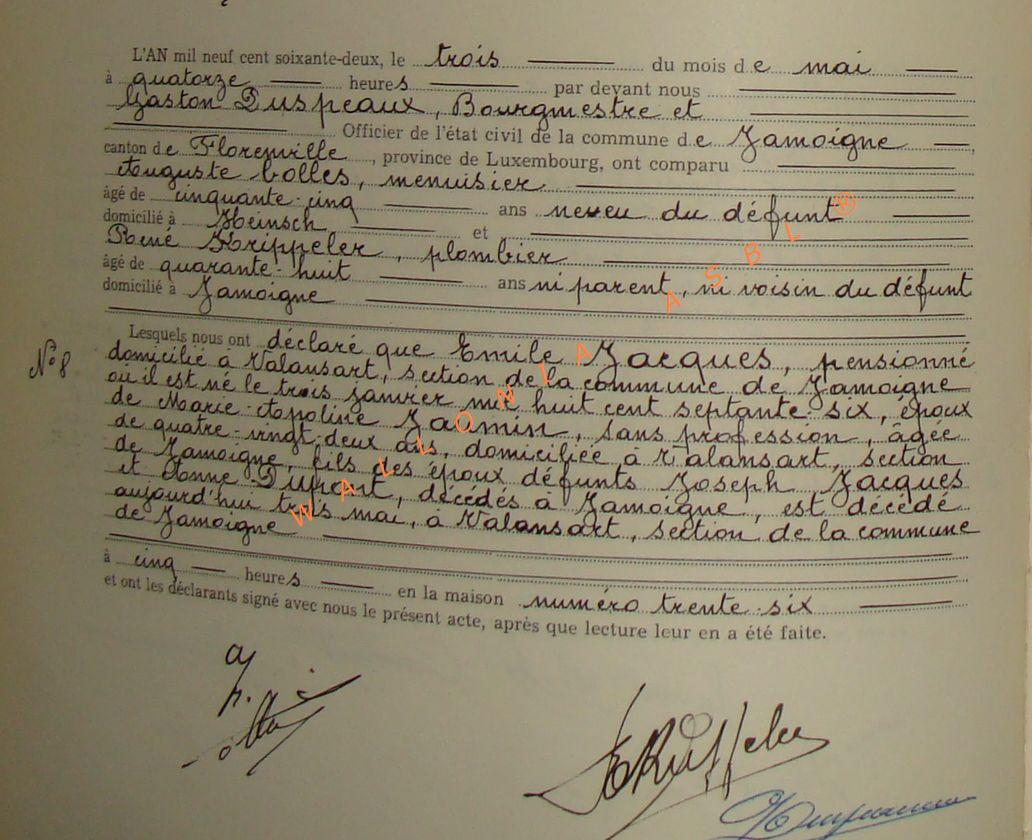 L'AN mil neuf cent soixante-deux, le trois du mois de mai
à quatorze heures par devant nous
Gaston Duspeaux, Bourgmestre et
Officier de l'état civil de la commune de Jamoigne,
canton de Florenville, province de Luxembourg, ont comparu
Auguste Colles, menuisier
âgé de cinquante-cinq ans neveu du défunt
domicilié à Heinsch et
René Krippeler, plombier
âgé de quarante-huit ans ni parent, ni voisin du défunt
domicilié à Jamoigne
Lesquels nous ont déclaré que Emile Jacques, pensionné
N° 8
domicilié à Valansart, section de la commune de Jamoigne
où il est né le trois janvier mil huit cent septante-six, époux
de Marie-Apoline Jaomin, sans profession, âgée
de quatre-vingt-deux ans, domiciliée à Valansart, section
de Jamoigne, fils des époux défunts Joseph Jacques
et Anne Dupont, décédés à Jamoigne, est décédé
aujourd'hui trois mai, à Valansart, section de la commune
de Jamoigne
à cinq heures en la maison numéro trente-six
et ont les déclarants signé avec nous le présent acte, après que lecture leur en a été faite.
WALLONIA ASBL ®